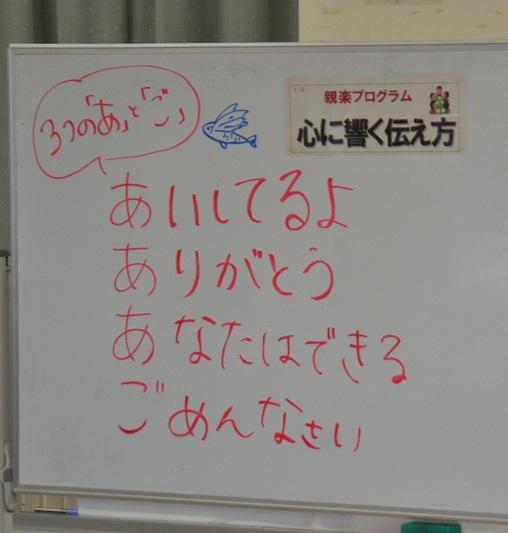 3つの「あ」と「ご」
親楽プログラム
心に響く伝え方
あいしてるよ
ありがとう
あなたはできる
ごめんなさい